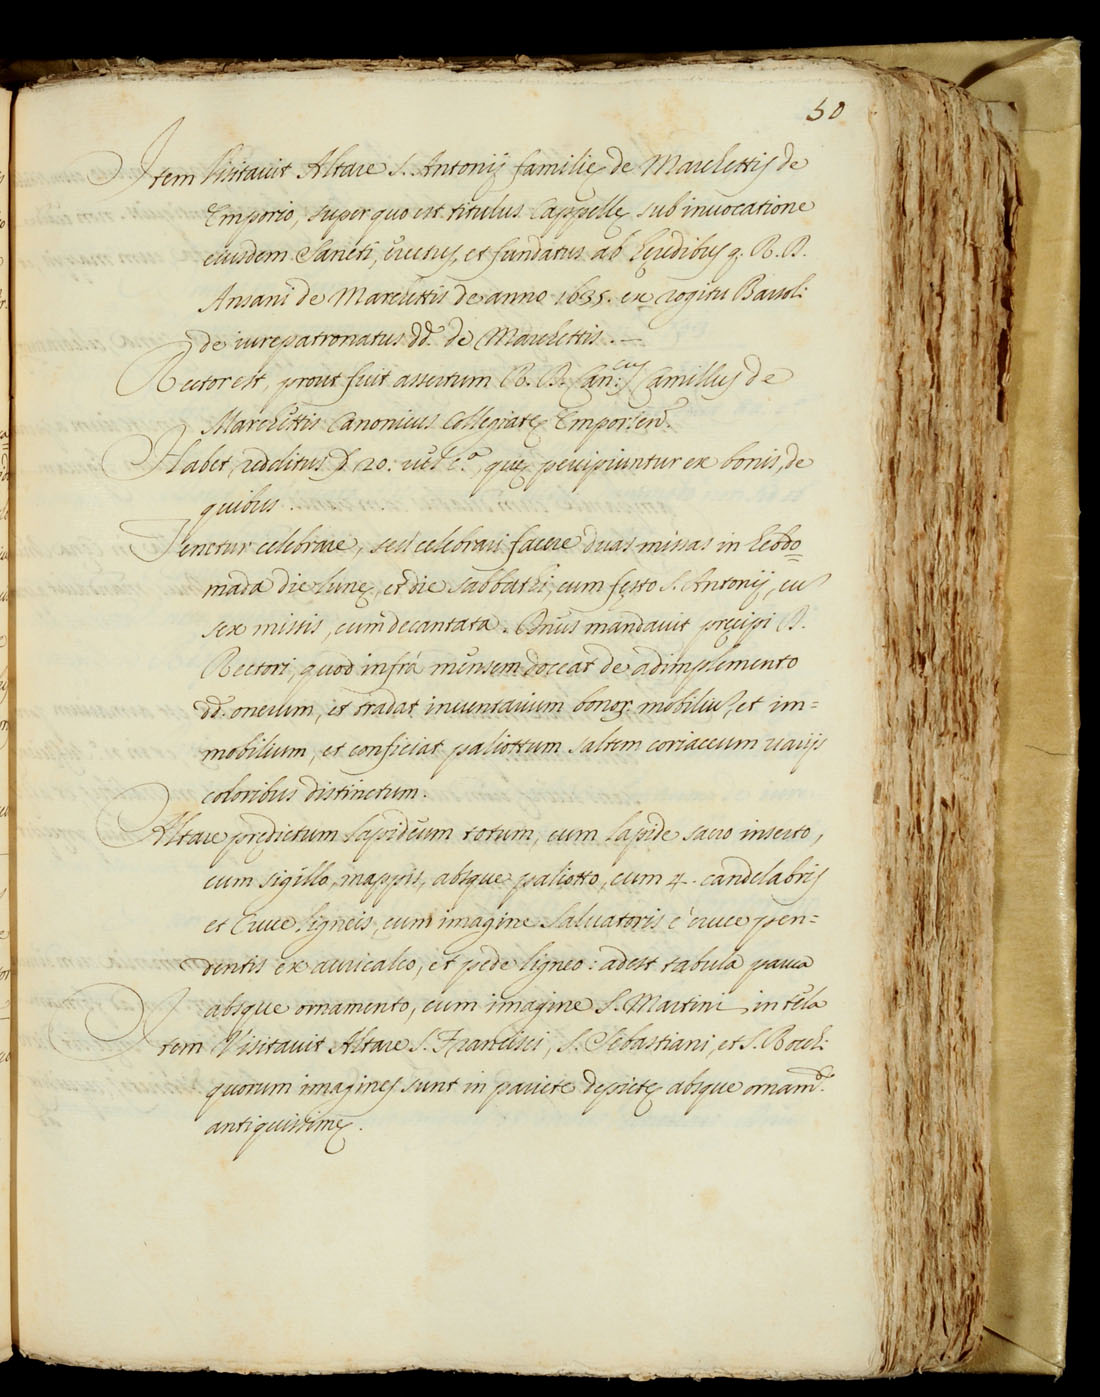 50
Item Visitavit Altare S. Antonij familię de Marchettis de
Emporio, super quo est titulus Cappellę sub invocatione
eiusdem Sancti, erectus, et fundatus ab hęredibus q. R. D.
Ansani de Marchettis de anno 1635. ex rogitu Bartol:
de iurepatronatus dd. de Marchettis. —
Rector est, prout fuit assertum R. D. Can:cus Camillus de
Marchettis Canonicus Collegiatę Emporien.
Habet redditus 20. vel c.a, quę percipiuntur ex bonis, de
quibus.
Tenetur celebrare, seu celebrari facere duas missas in hebdo=
mada die lunę, et die sabbathi, cum festo S. Antonij, cu
sex missis, cum decantata. Dnus mandavit pręcipi D.
Rectori, quod infrà mensem doceat de adimplemento
dd. onerum, et tradat inventarium bonor. mobiliu, et im=
mobilium, et conficiat paliottum saltem coriaceum varijs
coloribus distinctum.
Altare prędictum lapideum totum, cum lapide sacro inserto,
cum sigillo, mappis, absque paliotto, cum 4. candelabris
et Cruce ligneis, cum imagine Salvatoris è cruce pen=
dentis ex auricalco, et pede ligneo: adest tabula parva
absque ornamento, cum imagine S. Martini in tela
Item Visitavit Altare S. Francisci, S. Sebastiani, et S. Roch:
quorum imagines sunt in pariete depictę absque ornam.to
antiquissimę.